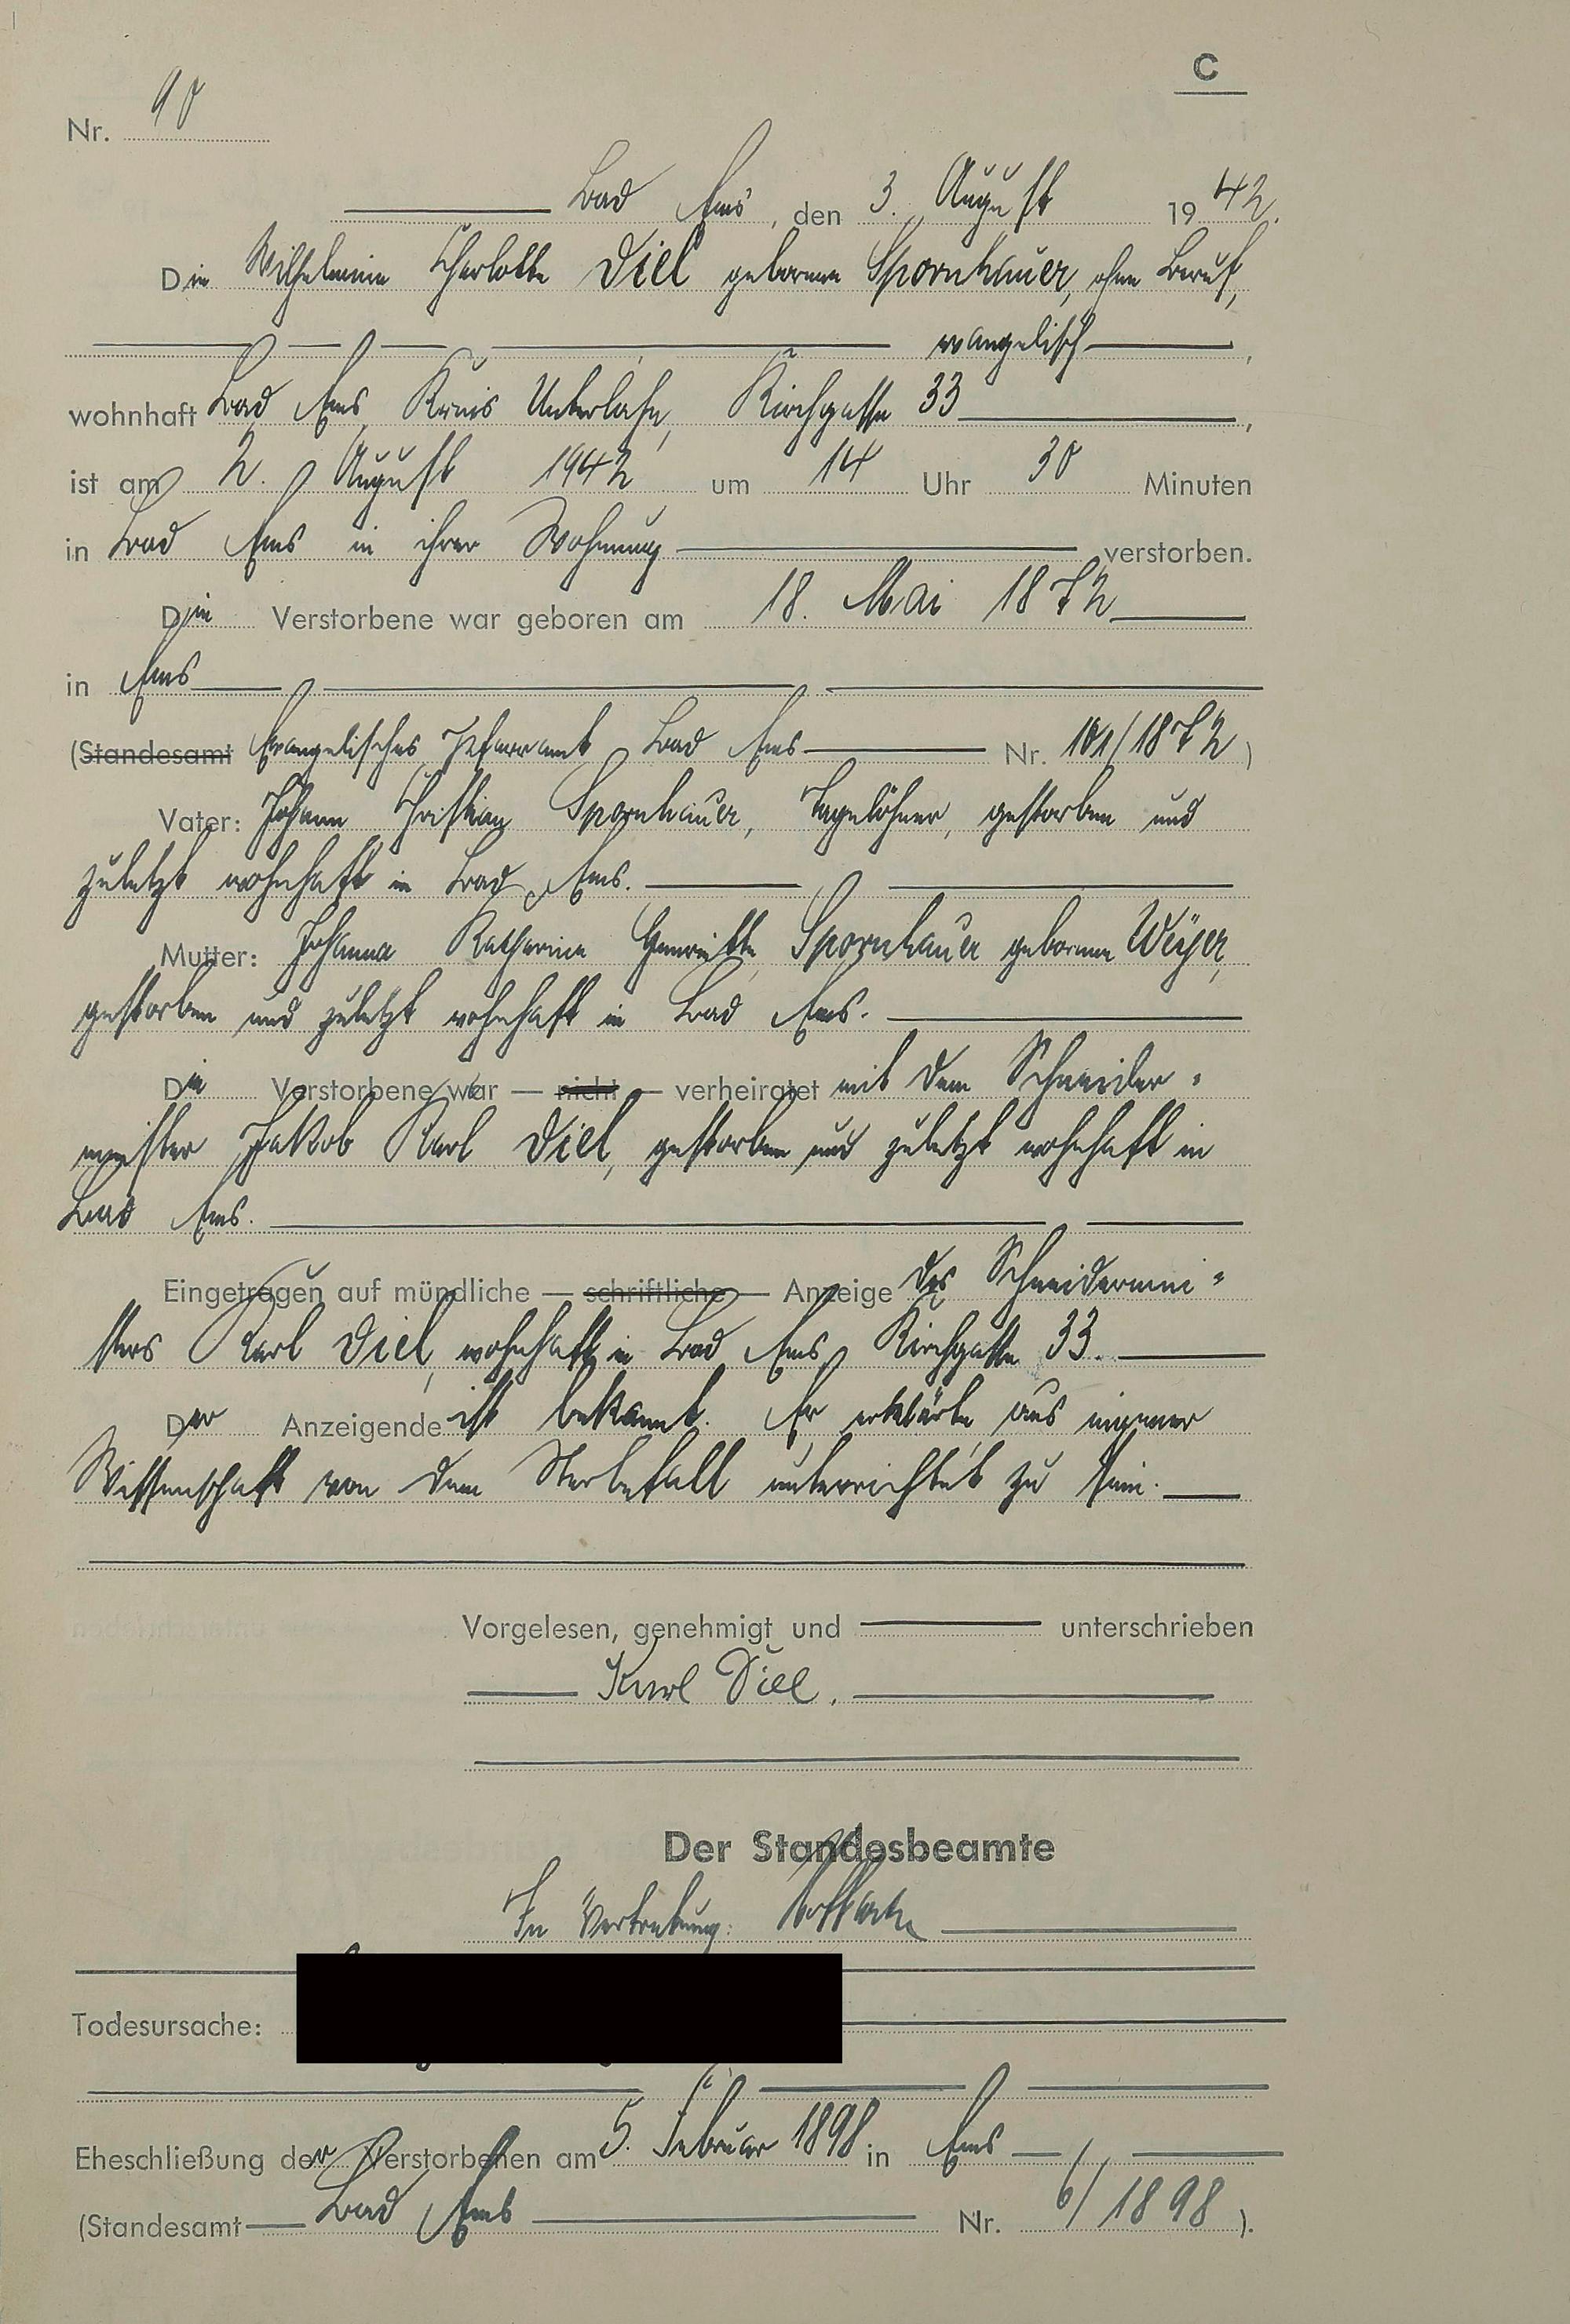 C
Nr. 90
Bad Ems, den 3. August 1942.
Die Wilhelmine Charlotte Diel geborene Spornhauer, ohne Beruf,
evangelisch,
wohnhaft Bad Ems, Kreis Unterlahn, Kirchgasse 33,
ist am 2. August 1942 um 14 Uhr 30 Minuten
in Bad Ems in ihrer Wohnung verstorben.
Die Verstorbene war geboren am 18. Mai 1872
in Ems
(Standesamt Evangelisches Pfarramt Bad Ems Nr. 101/1872)
Vater: Johann Christian Spornhauer, Tagelöhner, gestorben und
zuletzt wohnhaft in Bad Ems.
Mutter: Johanna Katharina Henriette Spornhauer geborene Weyer,
gestorben und zuletzt wohnhaft in Bad Ems.
Die Verstorbene war — nicht — verheiratet mit dem Schneider-
meister Jakob Karl Diel, gestorben und zuletzt wohnhaft in
Bad Ems.
Eingetragen auf mündliche — schriftliche — Anzeige des Schneidermei-
sters Karl Diel, wohnhaft in Bad Ems, Kirchgasse 33.
Der Anzeigende ist bekannt. Er erklärte aus eigener
Wissenschaft von dem Sterbefall unterrichtet zu sein.
Vorgelesen, genehmigt und unterschrieben
Karl Diel.
Der Standesbeamte
In Vertretung:
Todesursache:
Eheschließung der Verstorbenen am 5. Februar 1898 in Ems
(Standesamt Bad Ems Nr. 6/1898).